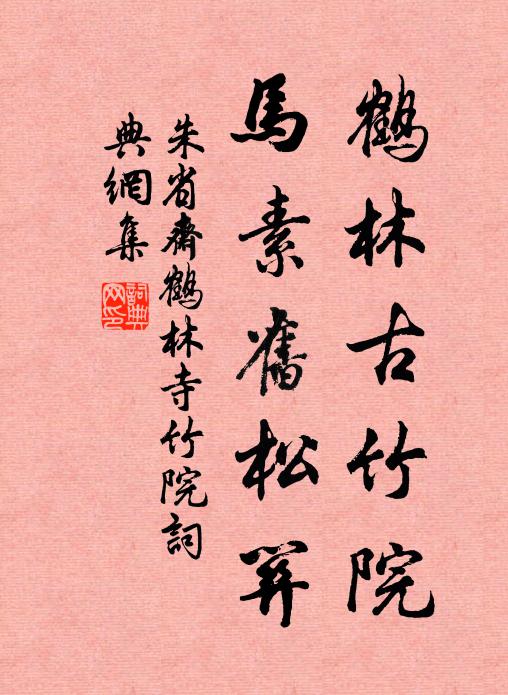 鶴林古竹院
馬素舊松關
朱省齋鶴林寺竹院詞
典網集
詞典
网印